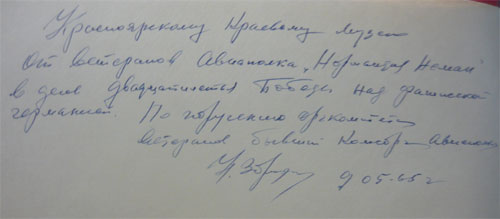 Красноярскому Краевому Музею
От ветеранов Авиаполка „Нормандия Неман"
в день двадцатилетия Победы над фашистской
германией. По поручению
ветеранов бывший Комсорг Авиаполка
9 05-65 г